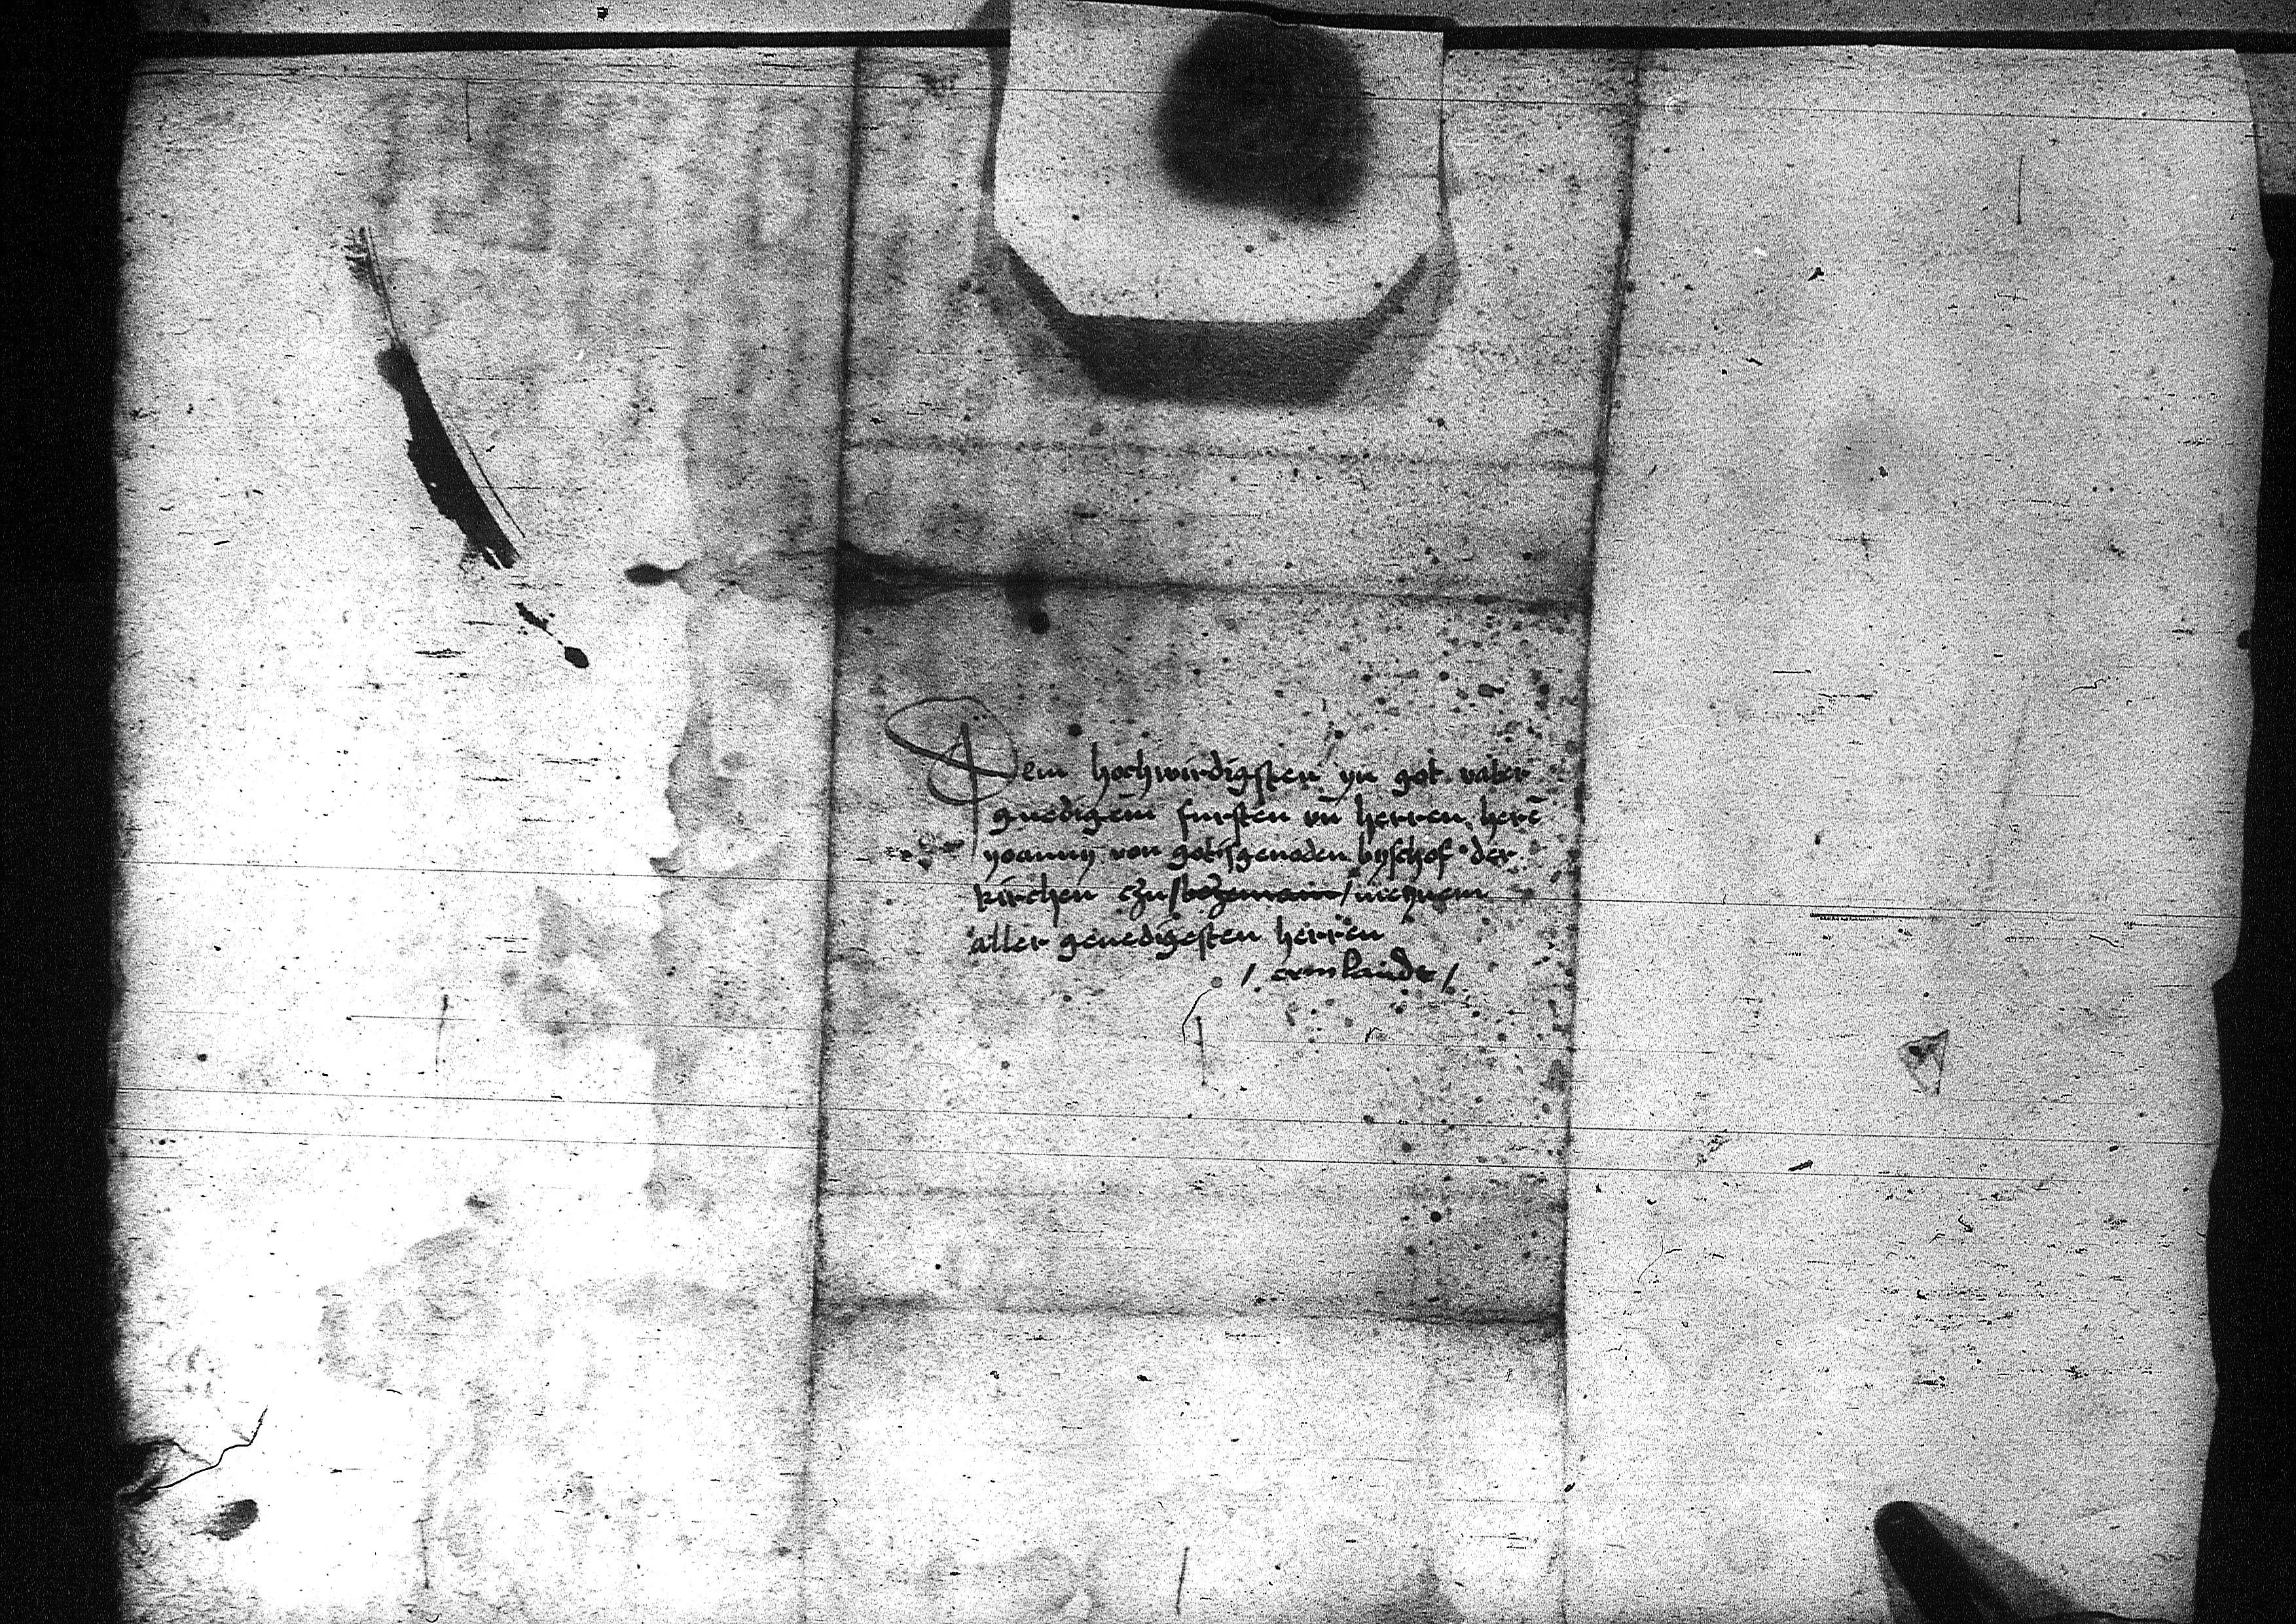 Dem hochwirdigsten yn got vater
gnedigem̄ fursten vn̄ herren, herē
yoanny von gotisgenaden byschof der
kirchen czu / meynem
aller genedigesten herren
/ ermlandt /